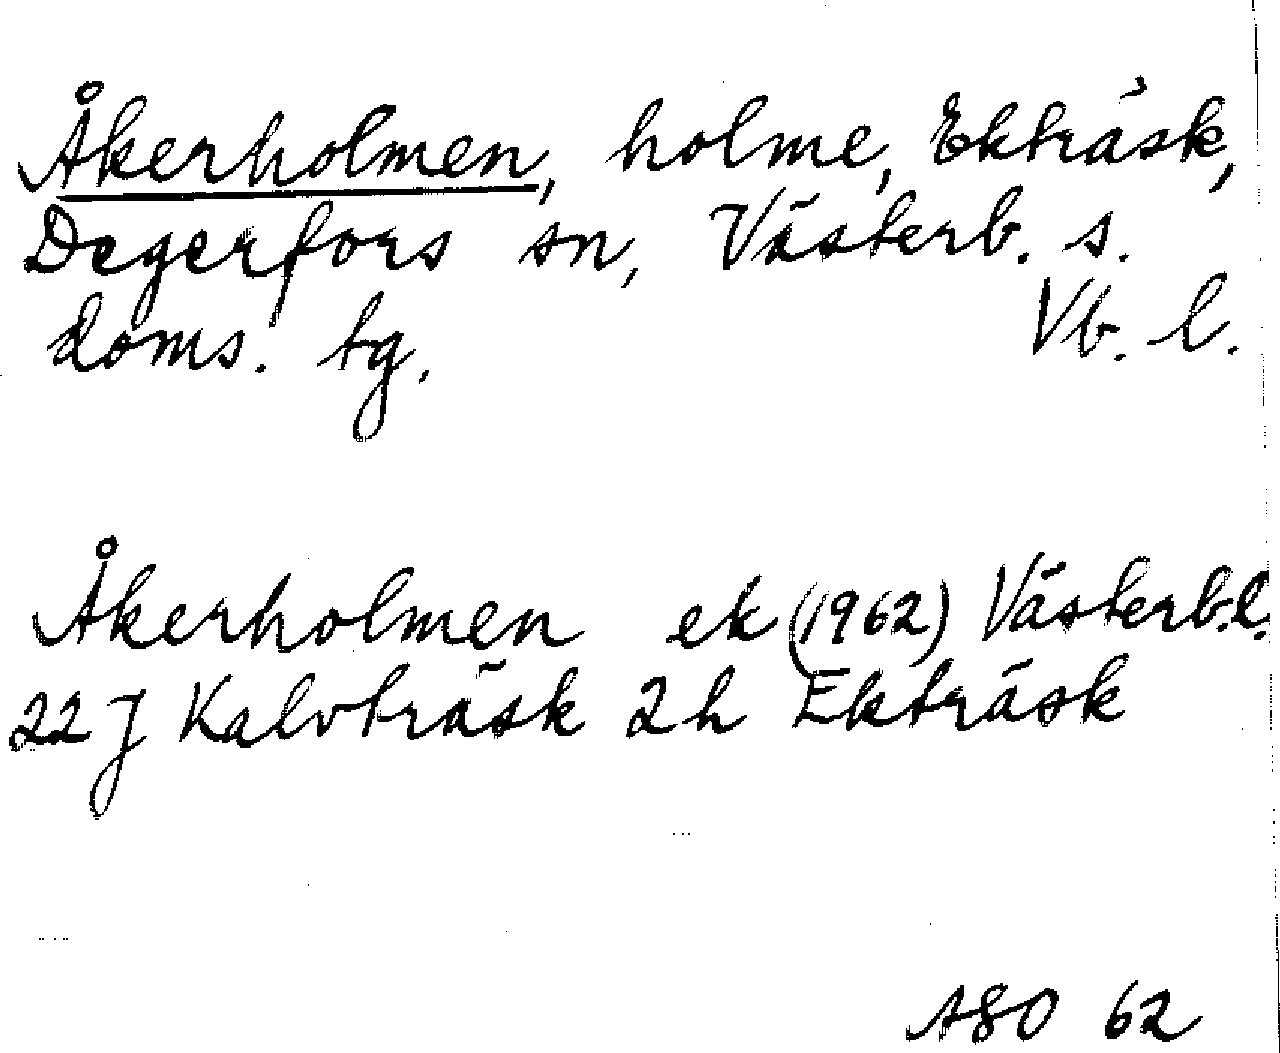 Åkerholmen, holme, Ekträsk,
Degerfors sn, Västerb. s.
doms. tg. Vb. l.
Åkerholmen ek (1962) Västerb. l.
22 J Kalvträsk 2 h Ekträsk
ASO 62